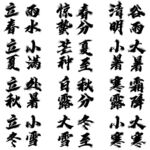 立春 雨水 惊蛰 春分 清明 谷雨
立夏 小满 芒种 夏至 小暑 大暑
立秋 处暑 白露 秋分 寒露 霜降
立冬 小雪 大雪 冬至 小寒 大寒